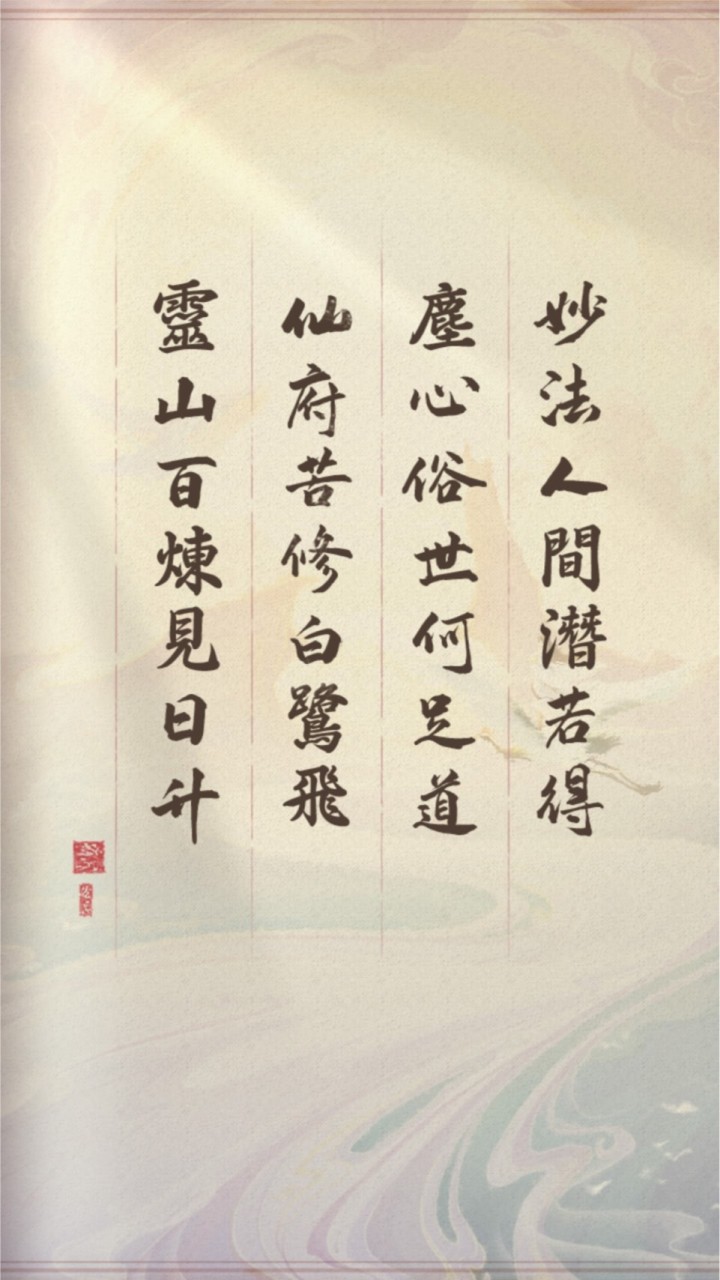 妙法人間潛若得
塵心俗世何足道
仙府苦修白鷺飛
靈山百煉見日升